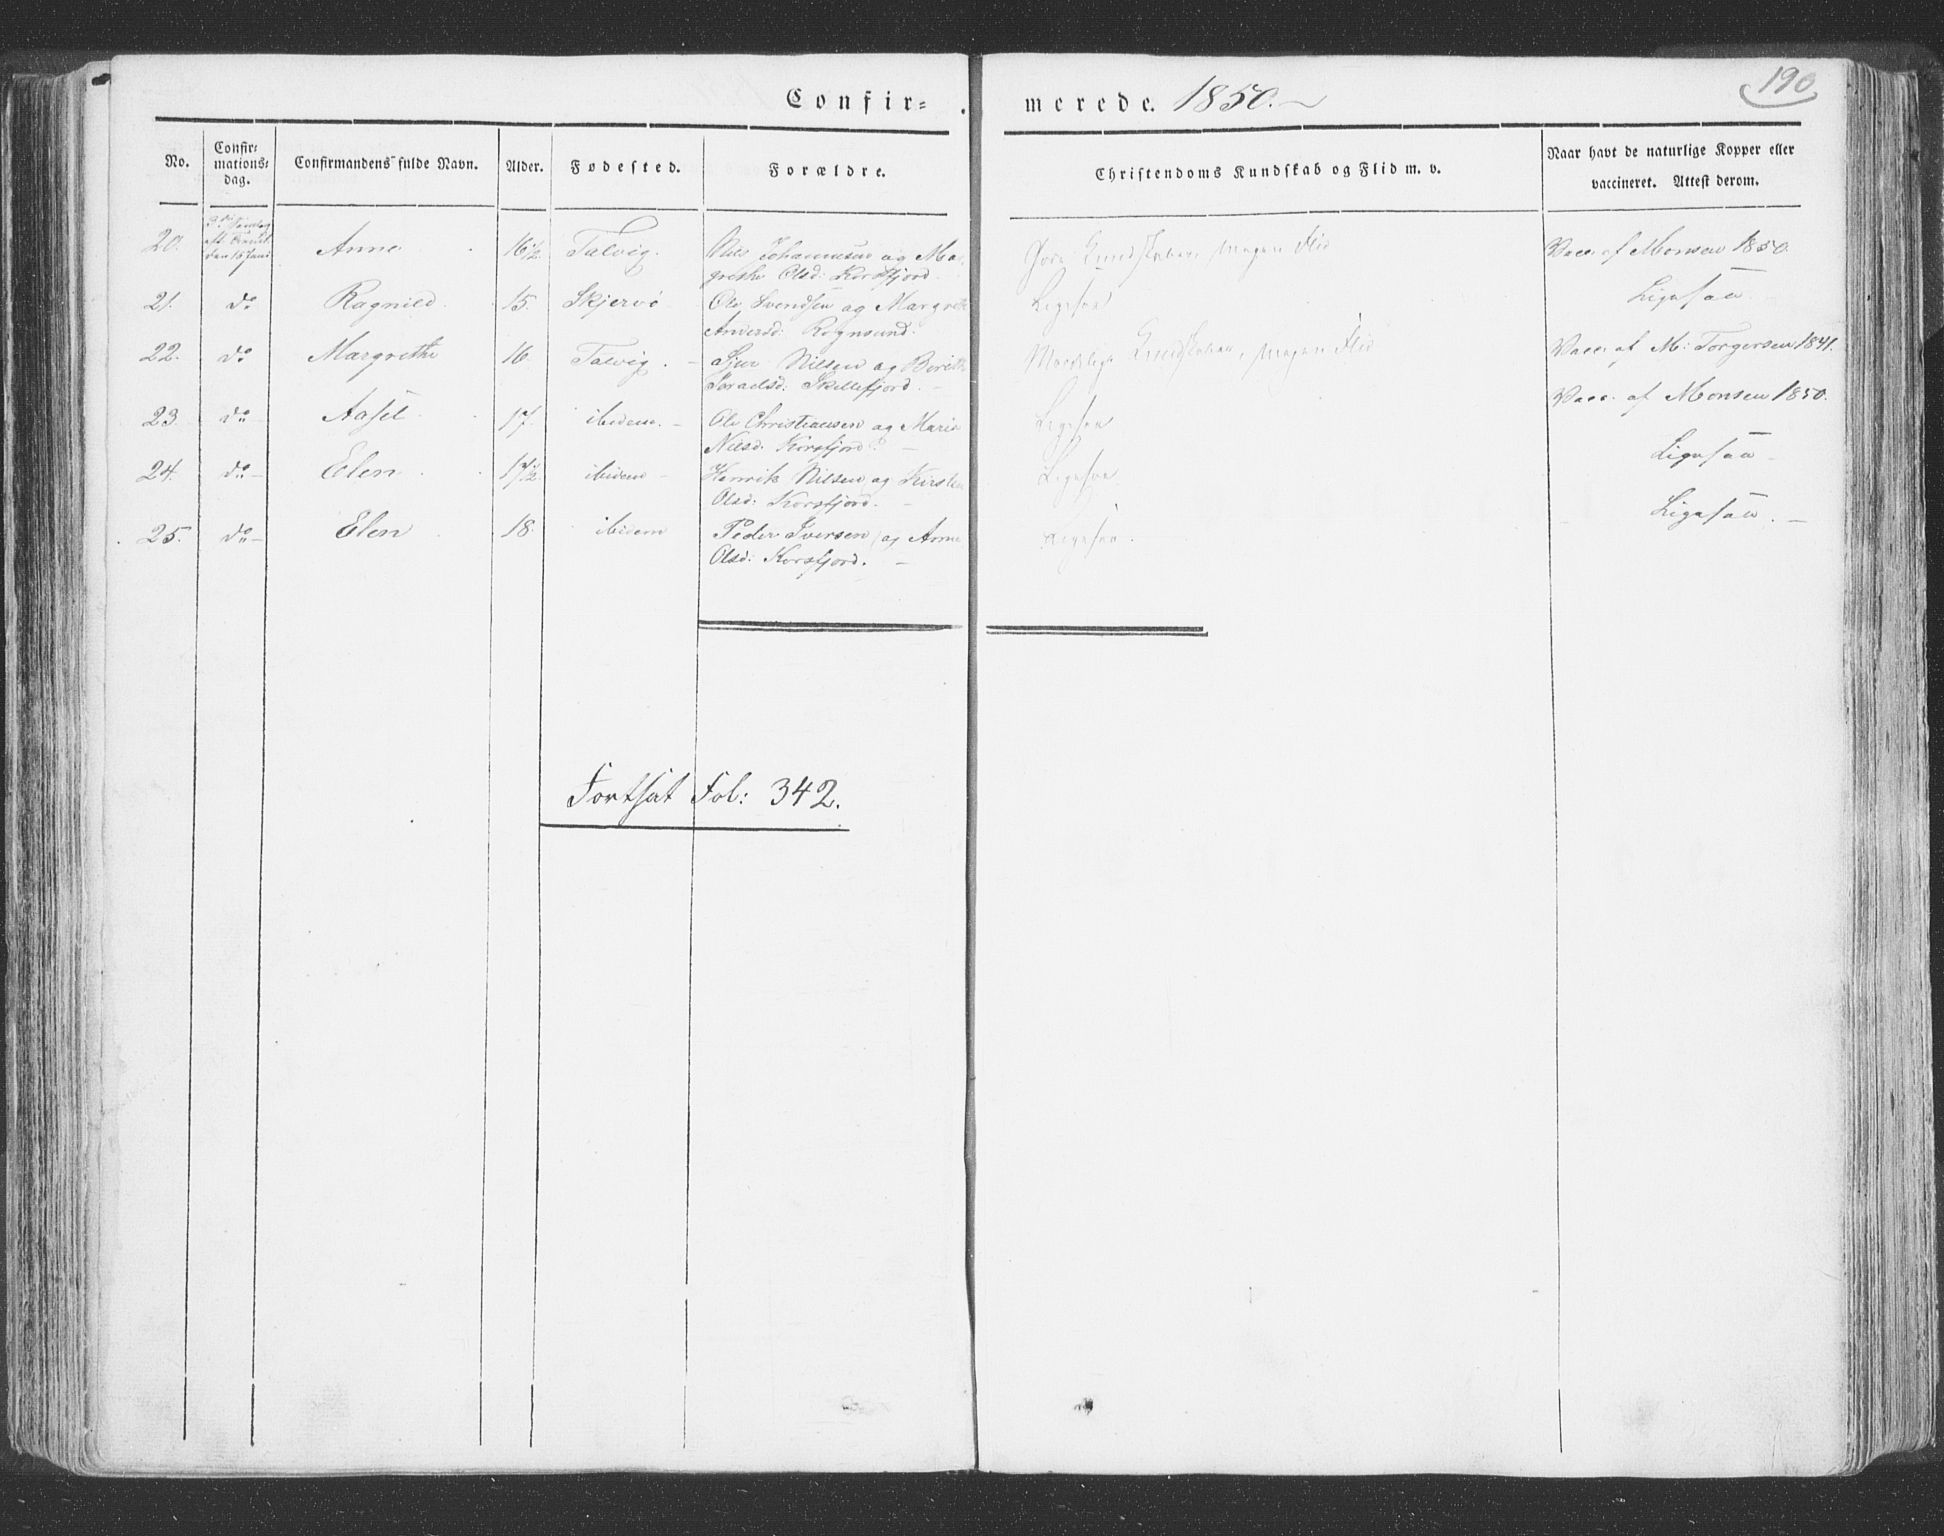 190
Confir= merede. 1850.
No. Confir: mations: dag. Confirmandens fulde Navn. Alder. Fødested. Forældre. Christendoms Kundskab og Flid m. v. Naar havt de naturlige Kopper eller vaccineret. Attest derom.
20. Søndag eft. den 16 Juni Anne 16 1/2 Talvig. Nils Johannesen og Ma- Gode Kundskaber, megen Flid Vacc. af Monsen 1850.
grethe Olsd: Korsfjord.
21. do Ragnild 15. Skjervø Ole Svendsen og Margreth Ligesaa Ligesaa
Andersd: Rognsund.
22. do Margrethe 16. Talvig. Sjur Nilsen og Bereth Maadelige Kundskaber, megen Flid Vacc. af M: Torgersen 1841.
Israelsd: Skillefjord.
23. do Aasel 17. ibidem. Ole Christiansen og Marie Ligesaa Vacc. af Monsen 1850.
Nilsd: Korsfjord.
24. do Elen 17 1/2 ibidem Henrik Nilsen og Kirsten Ligesaa Ligesaa
Olsd: Korsfjord.
25. do Elen 18. ibidem Peder Iversen og Anne Ligesaa. Ligesaa.
Olsd: Korsfjord.
Fortsat Fol: 342.